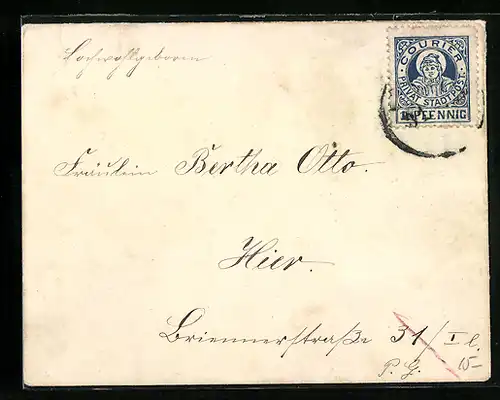 Hochwohlgeboren
COURIER
PRIVAT STADTPOST
PFENNIG
Fräulein Bertha Otto.
Hier.
Briennerstraße 31/I l.
P. G. 15-